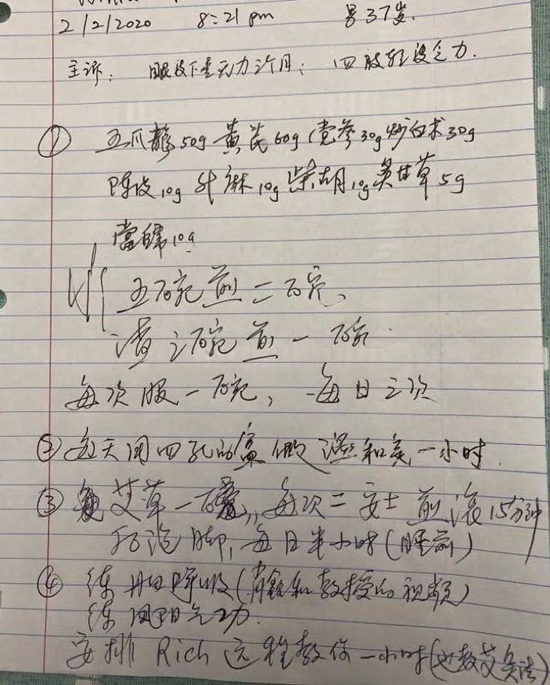 2/2/2020 8:21 pm 男37岁.
主诉: 眼皮下垂无力 四肢轻度乏力.
① 五爪龙50g 黄芪60g 党参30g 炒白术30g
陈皮10g 升麻10g 柴胡10g 炙甘草5g
當歸10g
五碗煎二碗,
渣三碗煎一碗.
每次服一碗, 每日三次
② 每天用四孔的 温和灸一小时.
③ 艾草一 每次二安士煎滚15分钟
泡脚, 每日半小时(睡前)
④ 练丹田呼吸( 教授的视频)
练 气功.
安排 Rich 远程教你一小时(也教艾灸法)